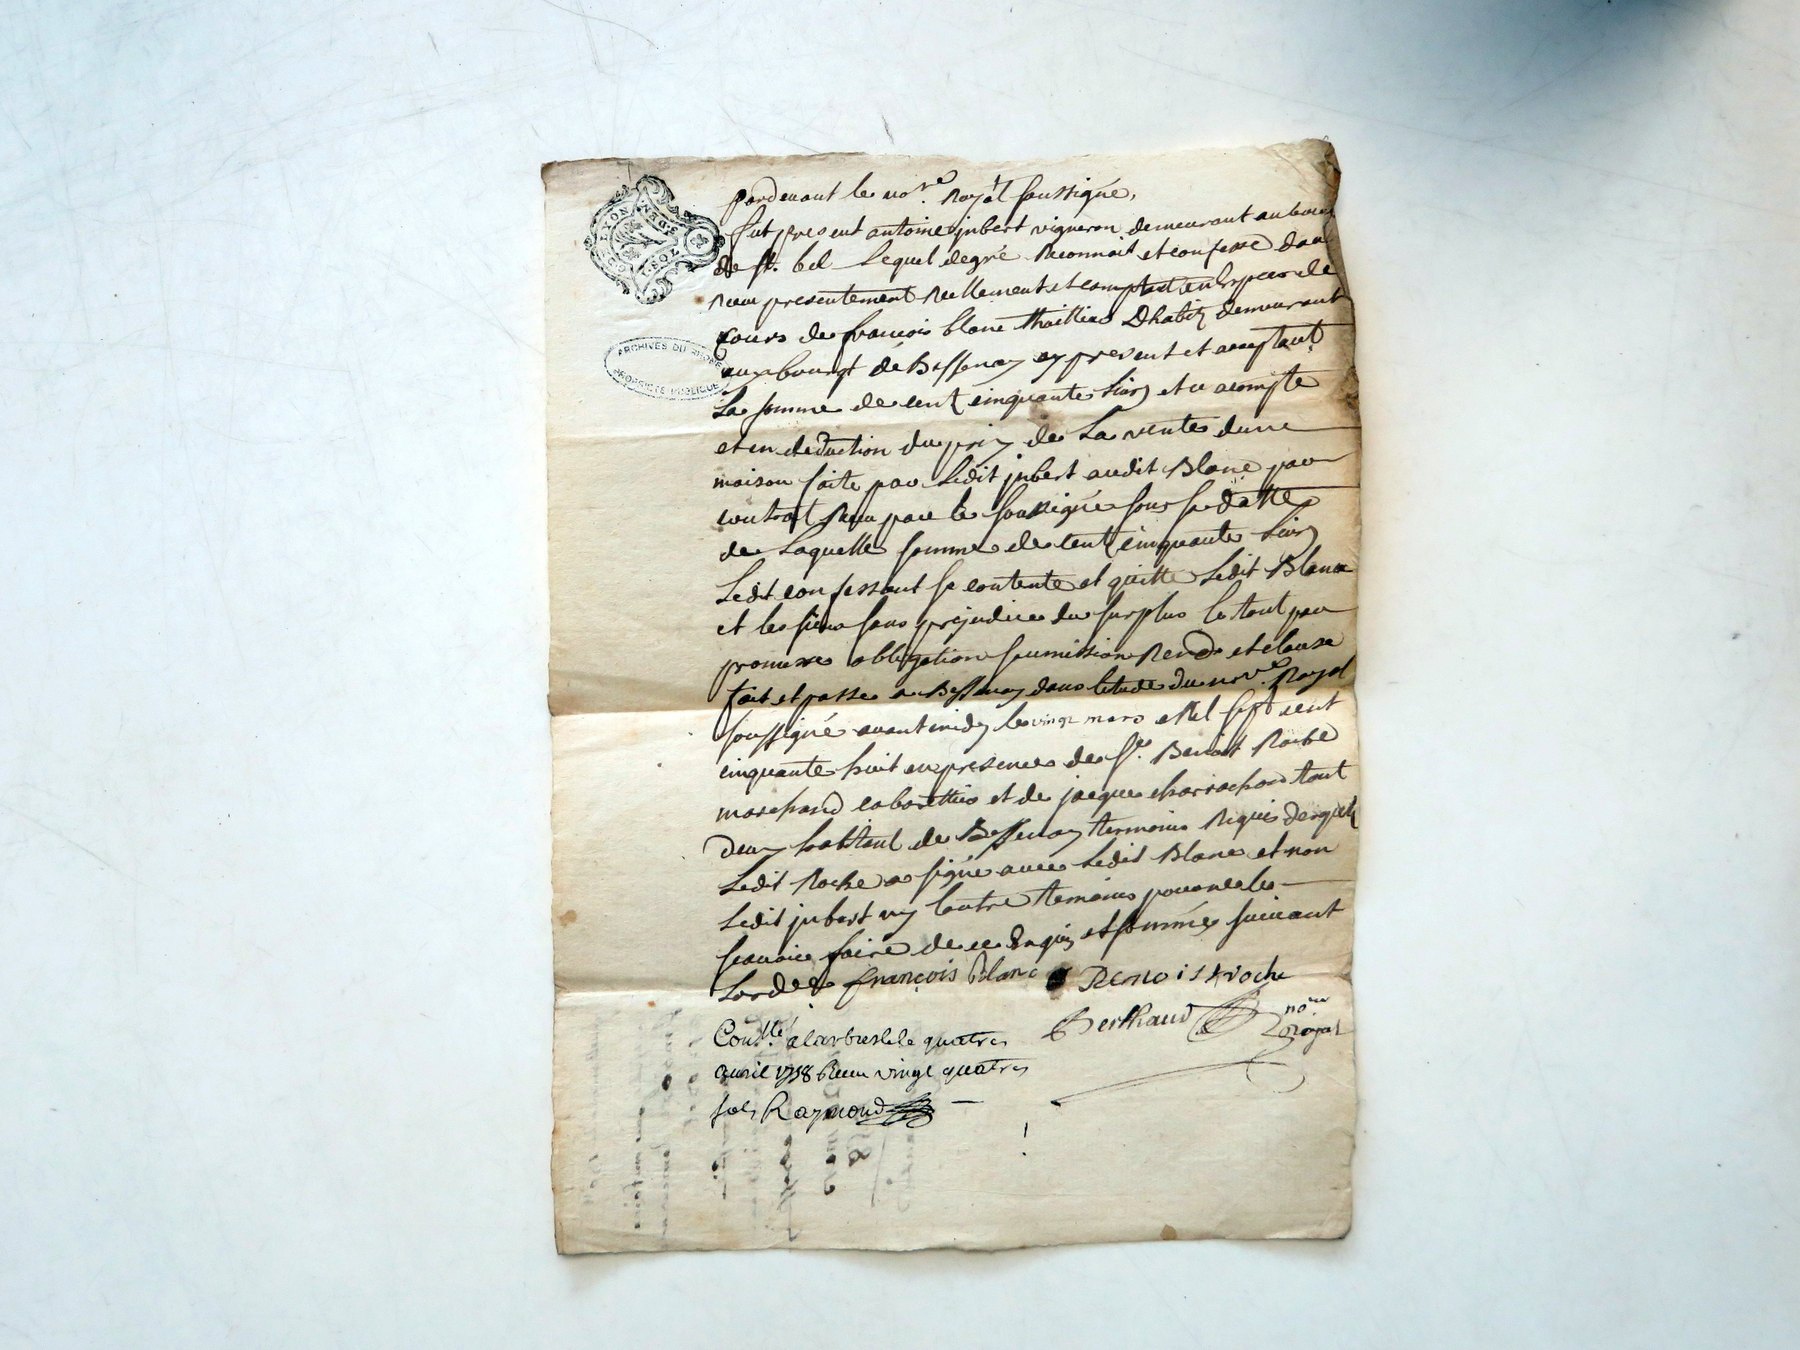 LYON
ARCHIVES DU RHÔNE
PROPRIÉTÉ PUBLIQUE
pardevant le no.re Royal soussigné,
fut present antoine jubert vigneron demeurant au bourg
de st. bel Lequel degré Reconnoit et confesse davoir
Receu presentement Reellement et comptant en Espece de
cours de francois blanc thaillieur Dhabit demeurant
au bourgt de Bessenay cy present et acceptant
La somme de cent cinquante Livs et ce acompte
et en deduction du prix de La vente dune
maison faite par Ledit jubert audit Blanc par
contrat Receu par le soussigné sous sa datte
de Laquelle somme de cent cinquante Livs
Ledit confessant se contente et quitte Ledit Blanc
et les siens sans prejudice du surplus le tout par
promesse obligation soumission Rend et clause
fait et passé a Bessenay dans letude du no.re Royal
soussigné avant midy le vingt mars Mil sept cent
cinquante huit en presence de sr. Benoit Roche
marchand cabarettier et de jacque charrachon tout
deux habitant de Bessenay temoins Requis desquels
Ledit Roche a signé avec Ledit Blanc et non
Ledit jubert ny lautre temoins pour ne le
scavoir faire de ce Enquis et sommés suivant
Lordce françois Blanc Benoist Roche
Berthaud no.re Royal
Con.llé a larbresle le quatre
avril 1758 Receu vingt quatre
sols Raymond